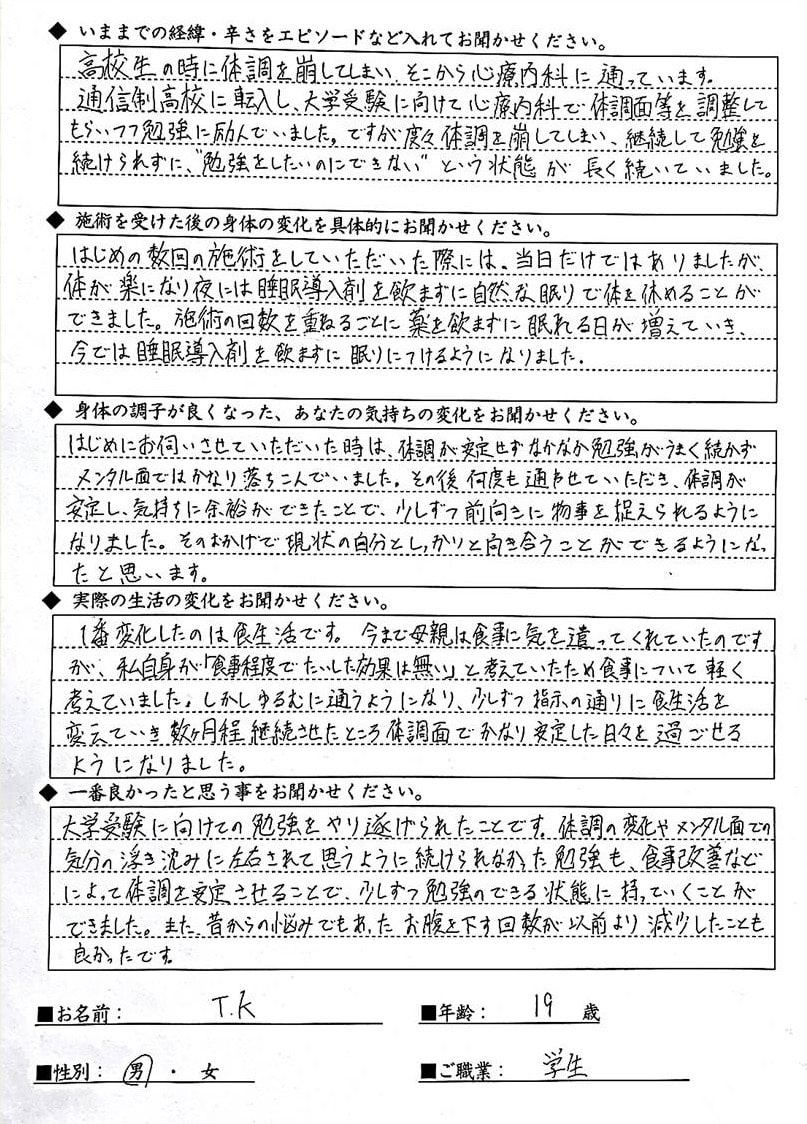 ◆ いままでの経緯・辛さをエピソードなど入れてお聞かせください。
高校生の時に体調を崩してしまい、そこから心療内科に通っています。
通信制高校に転入し、大学受験に向けて心療内科で体調面等を調整して
もらいつつ勉強に励んでいました。ですが度々体調を崩してしまい、継続して勉強を
続けられずに、"勉強をしたいのにできない" という状態が長く続いていました。
◆ 施術を受けた後の身体の変化を具体的にお聞かせください。
はじめの数回の施術をしていただいた際には、当日だけではありましたが、
体が楽になり夜には睡眠導入剤を飲まずに自然な眠りで体を休めることが
できました。施術の回数を重ねるごとに薬を飲まずに眠れる日が増えていき、
今では睡眠導入剤を飲まずに眠りにつけるようになりました.
◆ 身体の調子が良くなった、あなたの気持ちの変化をお聞かせください。
はじめにお伺いさせていただいた時は、体調が安定せずなかなか勉強がうまく続かず
メンタル面ではかなり落ちこんでいました。その後何度も通わせていただき、体調が
安定し、気持ちに余裕ができたことで、少しずつ前向きに物事を捉えられるように
なりました。そのおかげで現状の自分としっかりと向き合うことができるようになっ
たと思います。
◆ 実際の生活の変化をお聞かせください。
1番変化したのは食生活です。今まで母親は食事に気を遣ってくれていたのです
が、私自身が「食事程度でたいした効果は無い」と考えていたため食事について軽く
考えていました。しかしゆるむに通うようになり、少しずつ指示の通りに食生活を
変えていき数ヶ月程継続させたところ体調面でかなり安定した日々を過ごせる
ようになりました。
◆ 一番良かったと思う事をお聞かせください。
大学受験に向けての勉強をやり遂げられたことです。体調の変化やメンタル面での
気分の浮き沈みに左右されて思うように続けられなかった勉強も、食事改善など
によって体調を安定させることで、少しずつ勉強のできる状態に持っていくことが
できました。また、昔からの悩みでもあったお腹を下す回数が以前より減少したことも
良かったです。
■お名前： T.K ■年齢： 19 歳
■性別： 男 ・ 女 ■ご職業： 学生